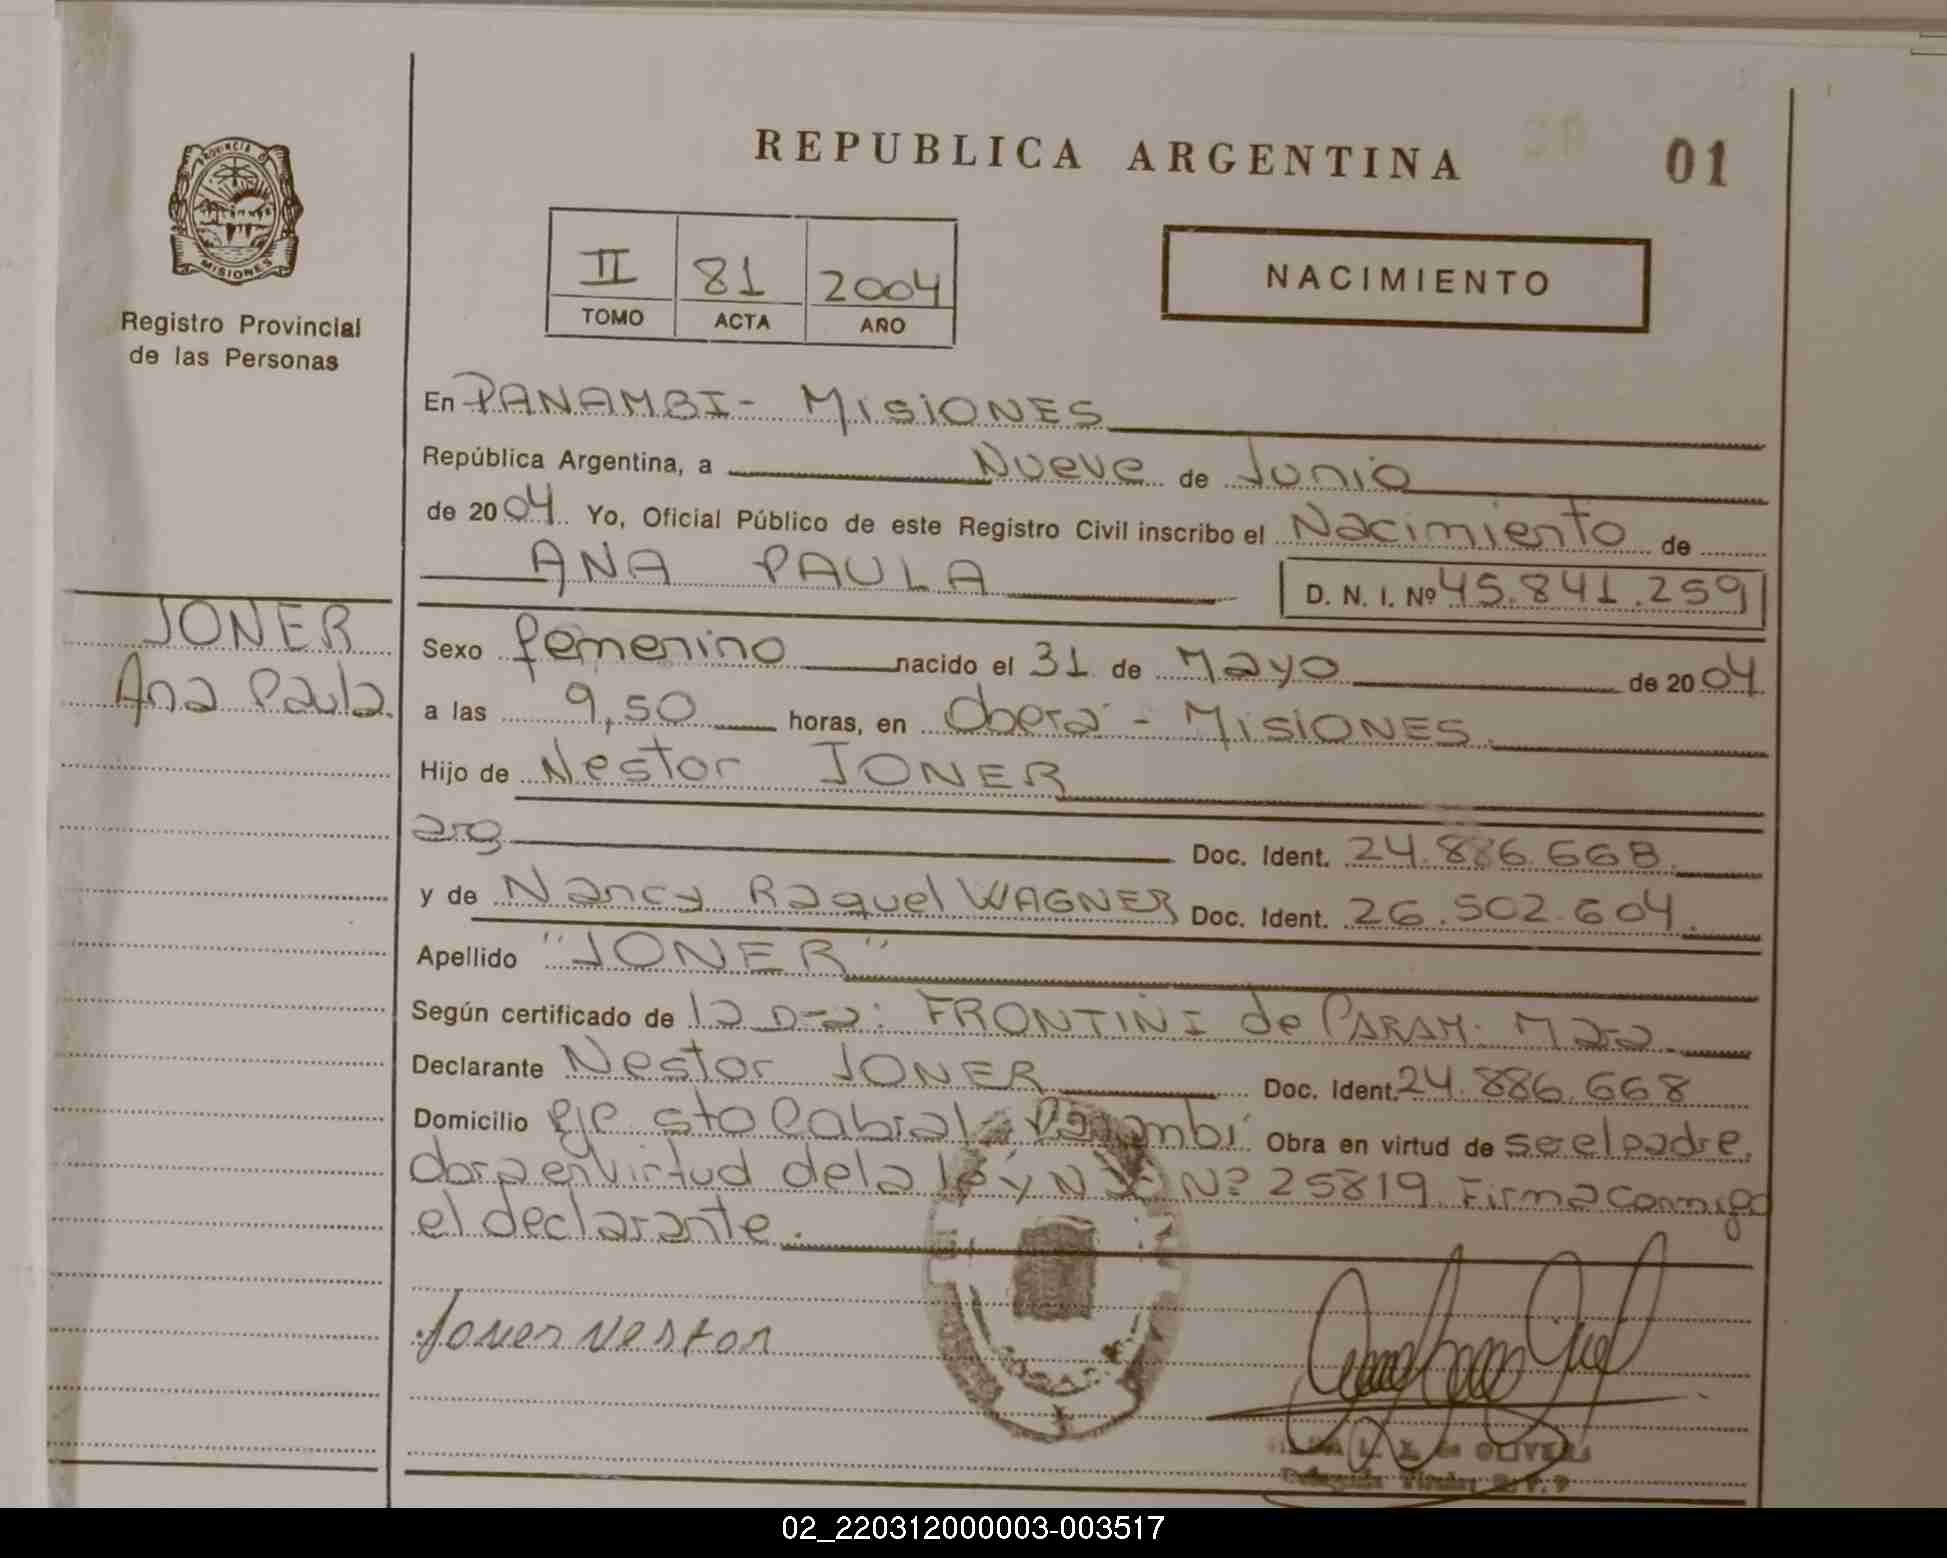 REPUBLICA ARGENTINA 01
PROVINCIA D
MISIONES
Registro Provincial
de las Personas
II 81 2004
TOMO ACTA AÑO
NACIMIENTO
En PANAMBI - MISIONES
República Argentina, a Nueve de Junio
de 2004 Yo, Oficial Público de este Registro Civil inscribo el Nacimiento de
ANA PAULA D. N. I. Nº 45.841.259
JONER
Ana Paula.
Sexo femenino nacido el 31 de Mayo de 2004
a las 9,50 horas, en Oberá - MISIONES.
Hijo de Nestor JONER
arg Doc. Ident. 24.886.668.
y de Nancy Raquel WAGNER Doc. Ident. 26.502.604.
Apellido "JONER"
Según certificado de la D-a: FRONTINI de PARAM.
Declarante Nestor JONER Doc. Ident. 24.886.668
Domicilio eje sto Cabral - Panambí Obra en virtud de ser el padre.
en virtud de la ley Nº 25819. Firma conmigo
el declarante.
Joner Nestor
OLIVERA
Titular R. P. P
02_220312000003-003517